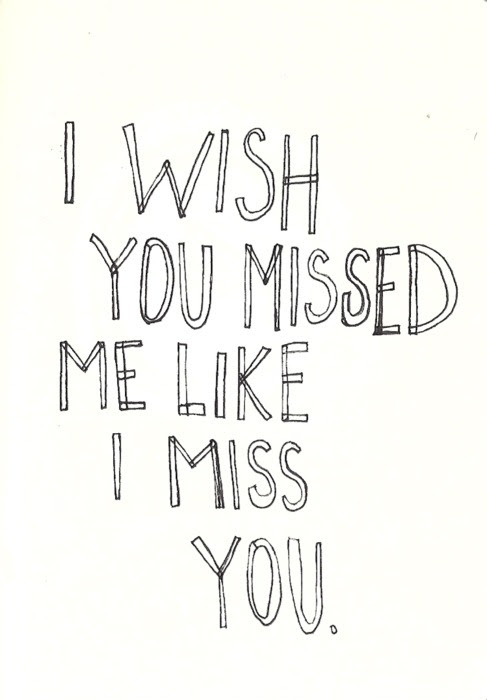 I WISH
YOU MISSED
ME LIKE
I MISS
YOU.